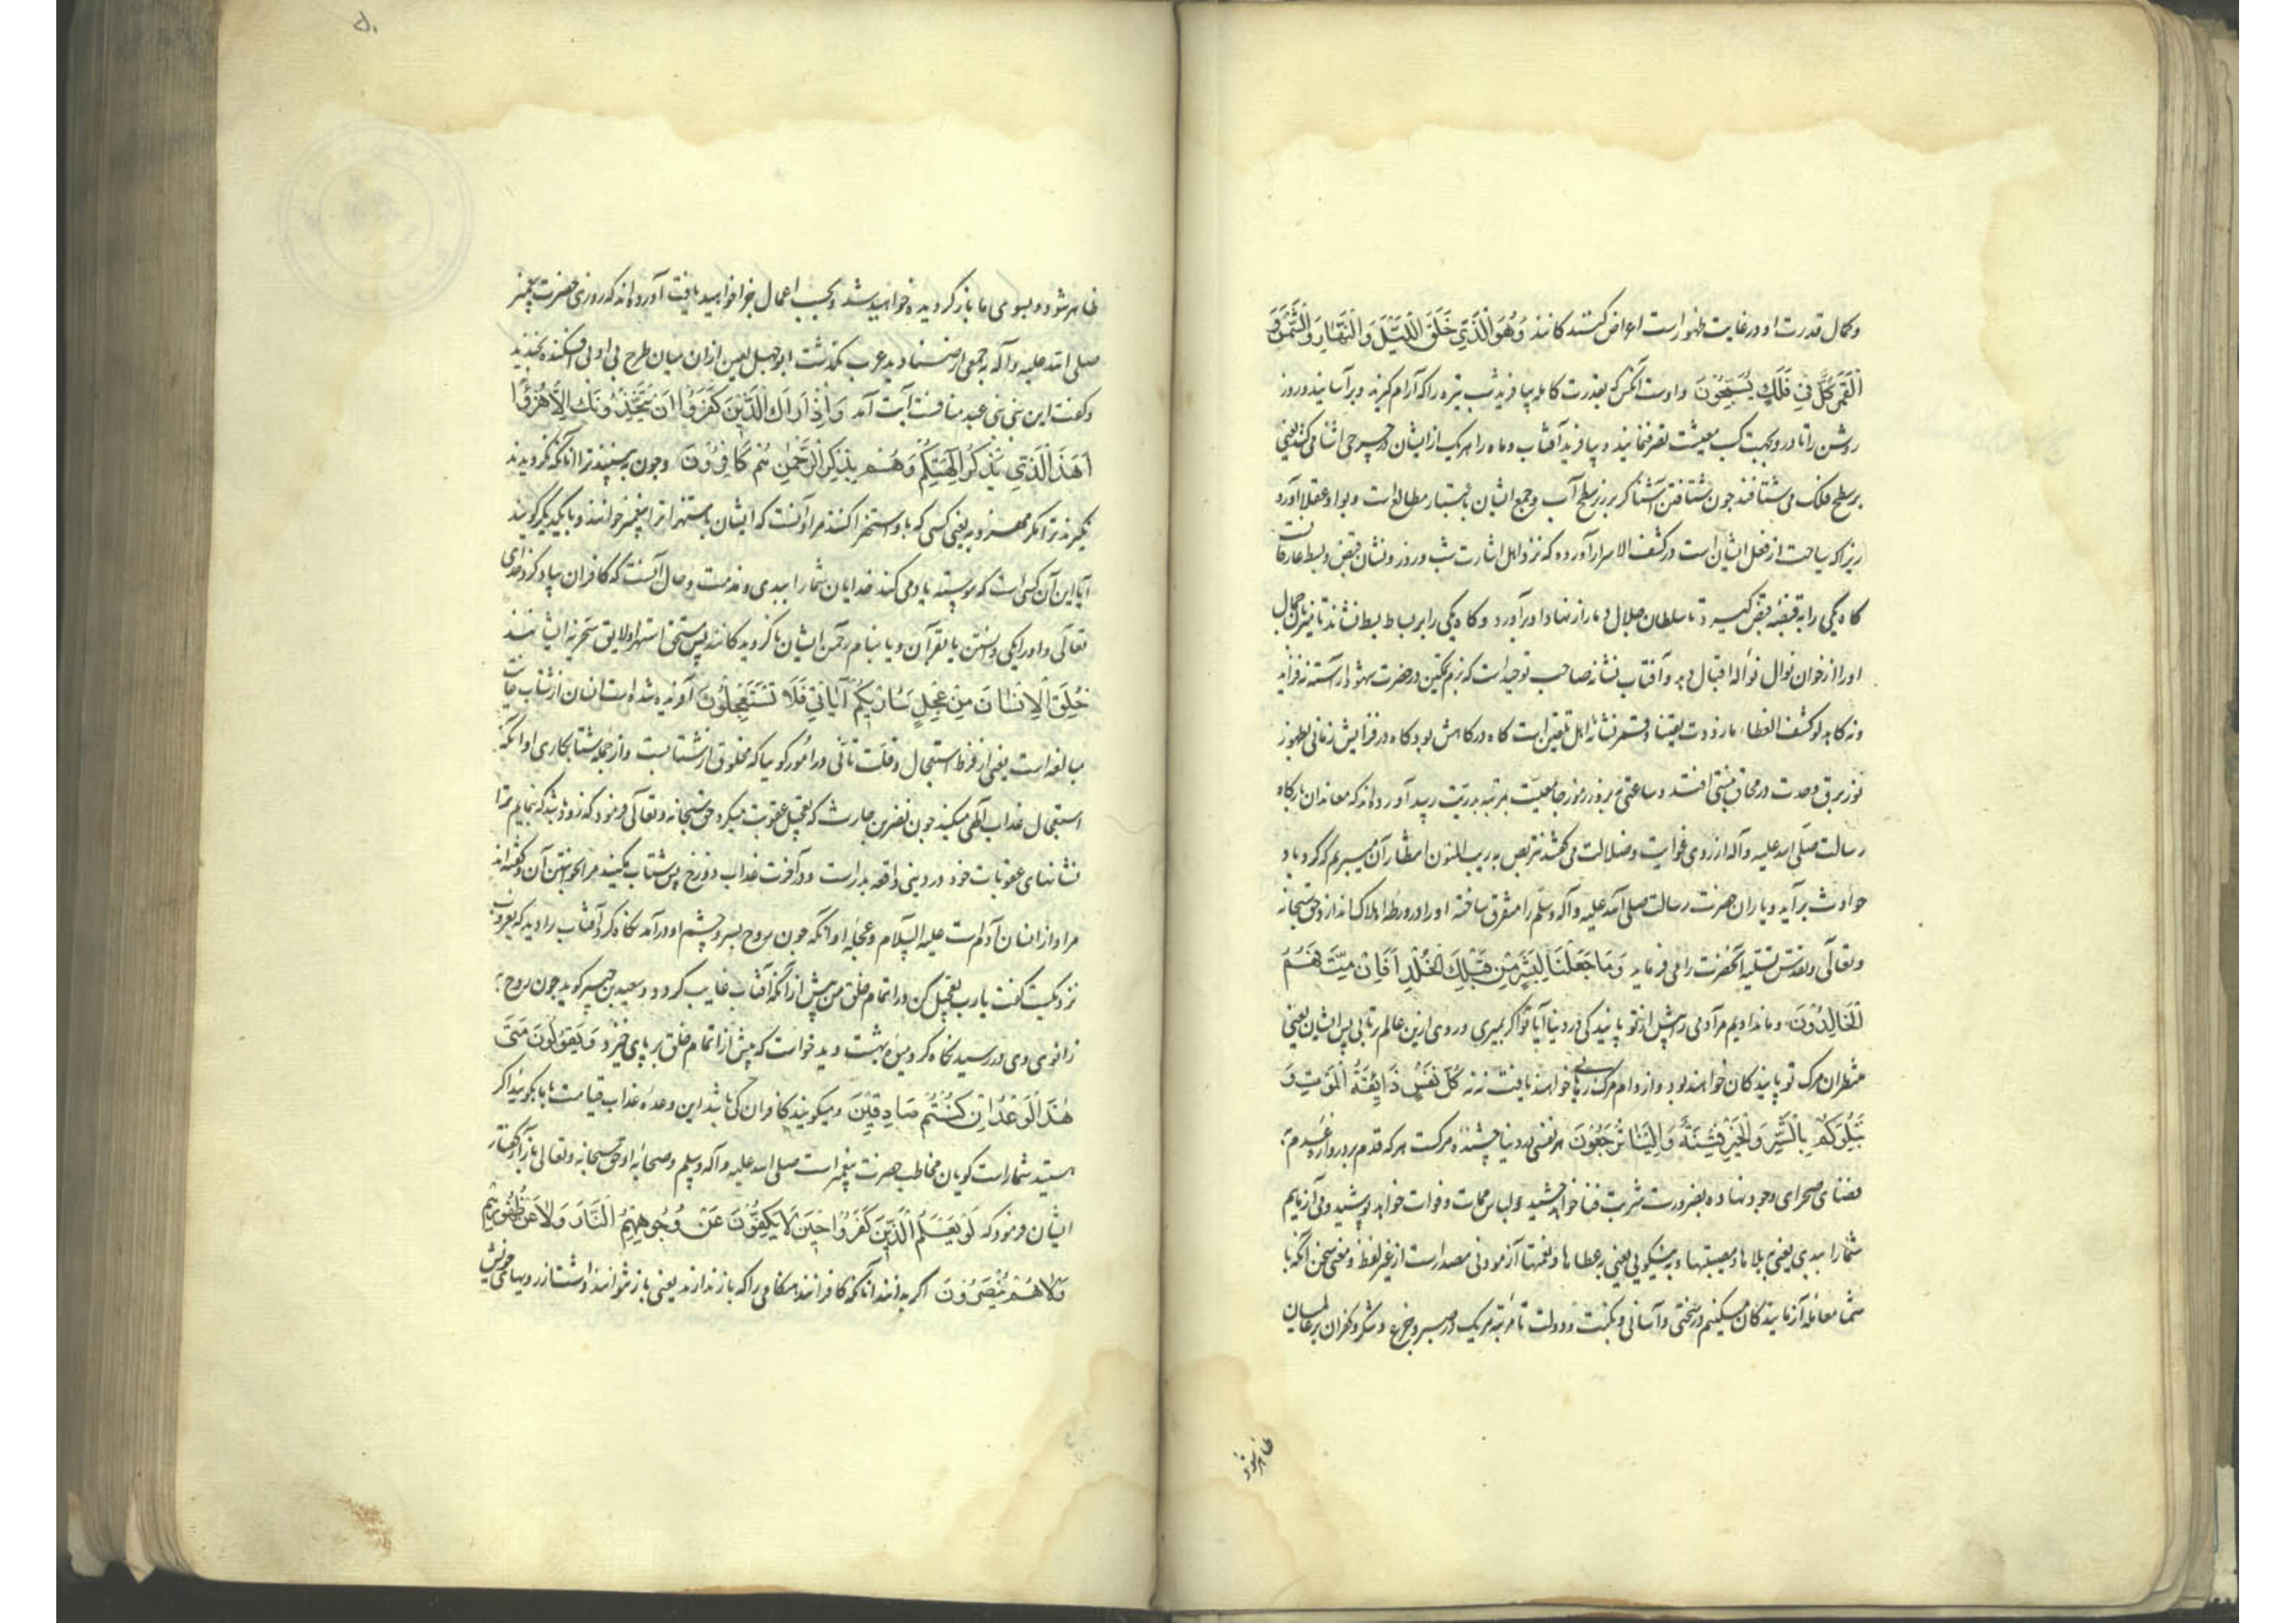 وکمال قدرت او در غایت ظهورست اعراض کنندکانند وَهُوَ الَّذِي خَلَقَ اللَّيْلَ وَالنَّهَارَ وَالشَّمْسَ وَ
الْقَمَرَ كُلٌّ فِي فَلَكٍ يَسْبَحُونَ واوست آنکس که بقدرت کامله بیافرید شب تیره را که آرام کیرند وبرآسایند وروز
روشن را تا در و بجهت کسب معیشت تصرف نمایند و بیافرید آفتاب وماه را هریک از ایشان در چرخی اشنا می کنند یعنی
بر سطح فلک می شتافند جون شتافتن آشناکر بر زبر سطح آب وجمع ایشان باعتبار مطالع است وبواو عقلا آورد
زیراکه سباحت از فعل ایشان است در کشف الاسرار آورده که نزد اهل اشارت شب وروز نشان قبض وبسط عارفانست
کاه یکی را به قبضه قبض کیرد تا سلطان جلال دمار از نهاد او برآورد وکاه یکی را بر بساط بسط نشاند تا میزبان جمال
او را از خوان نوال نواله اقبال دهد و آفتاب نشانه صاحب توحیدست که بنعت تمکین در حضرت شهود آراسته نه فزاید
ونه کاهد لو کشف الغطاء ما ازددت یقینا وقمر نشانه اهل تلوین است کاه در کاهش بود وکاه در افزایش زمانی بظهور
نور برق وحدت در محاق نیستی افتد وساعتی ببروز رموز جامعیت بمرتبه بدریت رسد آورده اند که معاندان بارکاه
رسالت صلی الله علیه وآله از روی غوایت وضلالت می کفتند نتربص به ریب المنون انتظار آن میبریم که کرد باد
حوادث برآید ویاران حضرت رسالت صلی الله علیه وآله وسلم را متفرق ساخته او را در ورطه هلاک اندازد حق سبحانه
وتعالی وتقدس تسلیه آنحضرت را می فرماید وَمَا جَعَلْنَا لِبَشَرٍ مِنْ قَبْلِكَ الْخُلْدَ أَفَإِنْ مِتَّ فَهُمُ
الْخَالِدُونَ وما ندادیم مرآدمی را پیش از تو پایندکی در دنیا آیا تو اکر بمیری و روی ازین عالم برتابی پس ایشان یعنی
منتظران مرک تو پایندکان خواهند بود واز دام مرک رهایی خواهند یافت نه نه كُلُّ نَفْسٍ ذَائِقَةُ الْمَوْتِ وَ
نَبْلُوكُمْ بِالشَّرِّ وَالْخَيْرِ فِتْنَةً وَإِلَيْنَا تُرْجَعُونَ هر نفسی در دنیا چشنده مرکست هر که قدم بر دروازه عدم
فضای صحرای وجود نهاده بضرورت شربت فنا خواهد چشید ولباس ممات وفوات خواهد پوشید ومی آزماییم
شما را ببدی یعنی ببلاها ومصیبتها وبه نیکویی یعنی بعطاها ونعمتها آزمودنی مصدرست از غیر لفظ ومعنی سخن آنکه با
شما معامله آزمایندکان میکنیم در سختی وآسانی ونکبت ودولت تا مرتبه هریک در صبر وجزع وشکر وکفران بر عالمیان
ظاهر شود
ظاهر شود وبسوی ما بازکردیده خواهید شد وبحسب اعمال جزا خواهید یافت آورده اند که روزی حضرت پیغمبر
صلی الله علیه وآله بر جمعی از صنادید عرب بگذشت ابو جهل لعین ازان میان طرح بی ادبی افکنده بخندید
وکفت این نبی بنی عبد منافست آیت آمد وَإِذَا رَآكَ الَّذِينَ كَفَرُوا إِنْ يَتَّخِذُونَكَ إِلَّا هُزُوًا
أَهَذَا الَّذِي يَذْكُرُ آلِهَتَكُمْ وَهُمْ بِذِكْرِ الرَّحْمَنِ هُمْ كَافِرُونَ وجون به بینند ترا آنانکه نکرویدند
نکیرند ترا مکر مهزو به یعنی کسی که باو استهزا کنند مراد آنست که ایشان باستهزا ترا پیغمبر خوانند وبا یکدیکر کویند
آیا این آن کس است که پیوسته یاد می کند خدایان شما را ببدی ومذمت وحال آنست که کافران بیاد کرد خدای
تعالی واو را یکی دانستن یا بقرآن ویا بنام رحمن ایشان ناکرویدکانند پس مستحق استهزا ولایق سخریه ایشانند
خُلِقَ الْإِنْسَانُ مِنْ عَجَلٍ سَأُرِيكُمْ آيَاتِي فَلَا تَسْتَعْجِلُونَ آفریده شده است انسان از شتاب
مبالغه است یعنی از فرط استعجال وقلت تأنی در امور کوییا که مخلوق از شتابست واز جمله شتابکاری او آنکه
استعجال عذاب الهی میکند جون نضر بن حارث که تعجیل عقوبت میکرد حق سبحانه وتعالی فرمود که زود باشد که بنمایم شما را
نشانهای عقوبات خود در دینی واقعه بدرست ودر آخرت عذاب دوزخ پس شتاب مکنید مرا بخواستن آن وکفته اند
مراد از انسان آدم است علیه السلام وعجله او آنکه جون روح بسر وچشم او درآمد نکاه کرد آفتاب را دید که بغروب
نزدیکست کفت یارب تعجیل کن در اتمام خلق من پیش ازآنکه آفتاب غایب کردد وسعید بن جبیر کوید جون روح
زانوی وی در رسید نکاه کرد میوه بهشت دید خواست که پیش از اتمام خلق بر پای خیزد وَيَقُولُونَ مَتَى
هَذَا الْوَعْدُ إِنْ كُنْتُمْ صَادِقِينَ ومیکویند کافران کی باشد این وعده عذاب قیامت با ما بکویید اکر
هستید شما راست کویان مخاطب حضرت پیغمبرست صلی الله علیه وآله وسلم وصحابه او حق سبحانه وتعالی
ایشان فرمود که لَوْ يَعْلَمُ الَّذِينَ كَفَرُوا حِينَ لَا يَكُفُّونَ عَنْ وُجُوهِهِمُ النَّارَ وَلَا عَنْ ظُهُورِهِمْ
وَلَا هُمْ يُنْصَرُونَ اکر بدانند آنانکه کافرانند هنکامی را که باز ندارند یعنی باز نتوانند داشت از رویهای خویش